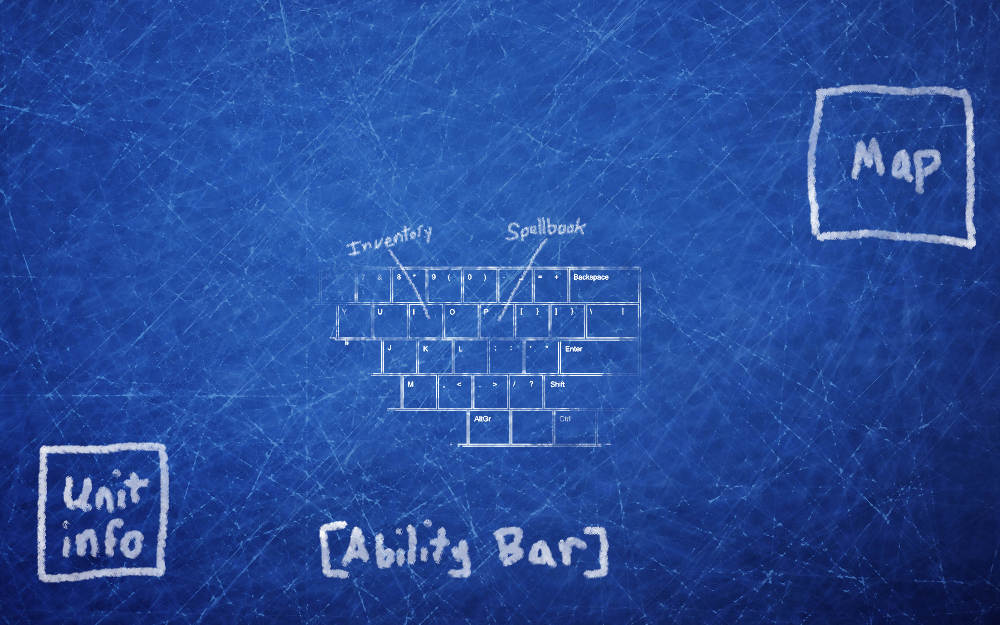 Map
Inventory Spellbook
7 & 8 * 9 ( 0 ) - _ = + Backspace
Y U I O P [ { ] } \ |
H J K L ; : ' " Enter
M , < . > / ? Shift
AltGr Ctrl
Unit
info
[Ability Bar]